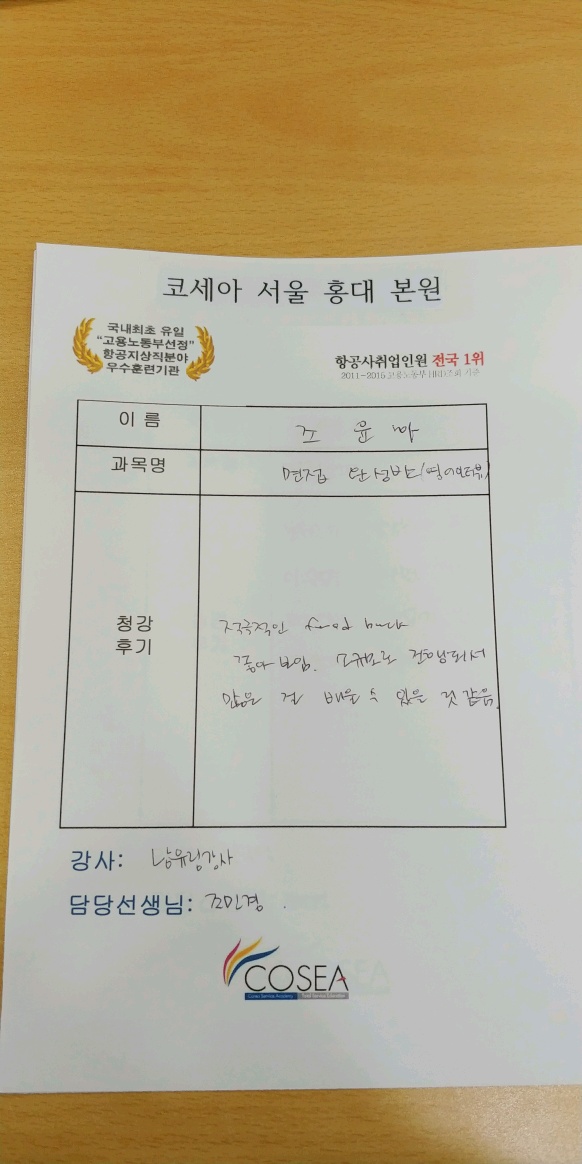 코세아 서울 홍대 본원
국내최초 유일
"고용노동부선정"
항공지상직분야
우수훈련기관
항공사취업인원 전국 1위
2011-2015 고용노동부 HRD조회 기준
이 름
조 윤
과목명
면접 탄성반
청강
후기
적극적인 feed back
좋아 보임. 소규모로 진행되서
많은 걸 배울 수 있을 것 같음.
강사: 남유림강사
담당선생님: 조민경
COSEA